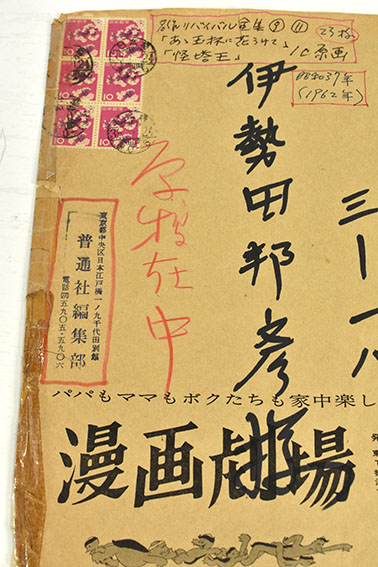 名作リバイバル全集⑨⑪ 23枚
「あゝ玉杯に花うけて」
原画
「怪塔王」
昭和37年
(1962年)
10 10
10 10
10 10
三ー一八
伊勢田邦彦様
原稿在中
東京都中央区日本江戸橋一ノ九千代田別館
普通社編集部
電話 五九〇五・五九〇六
パパもママもボクたちも家中楽し
漫画劇場
発